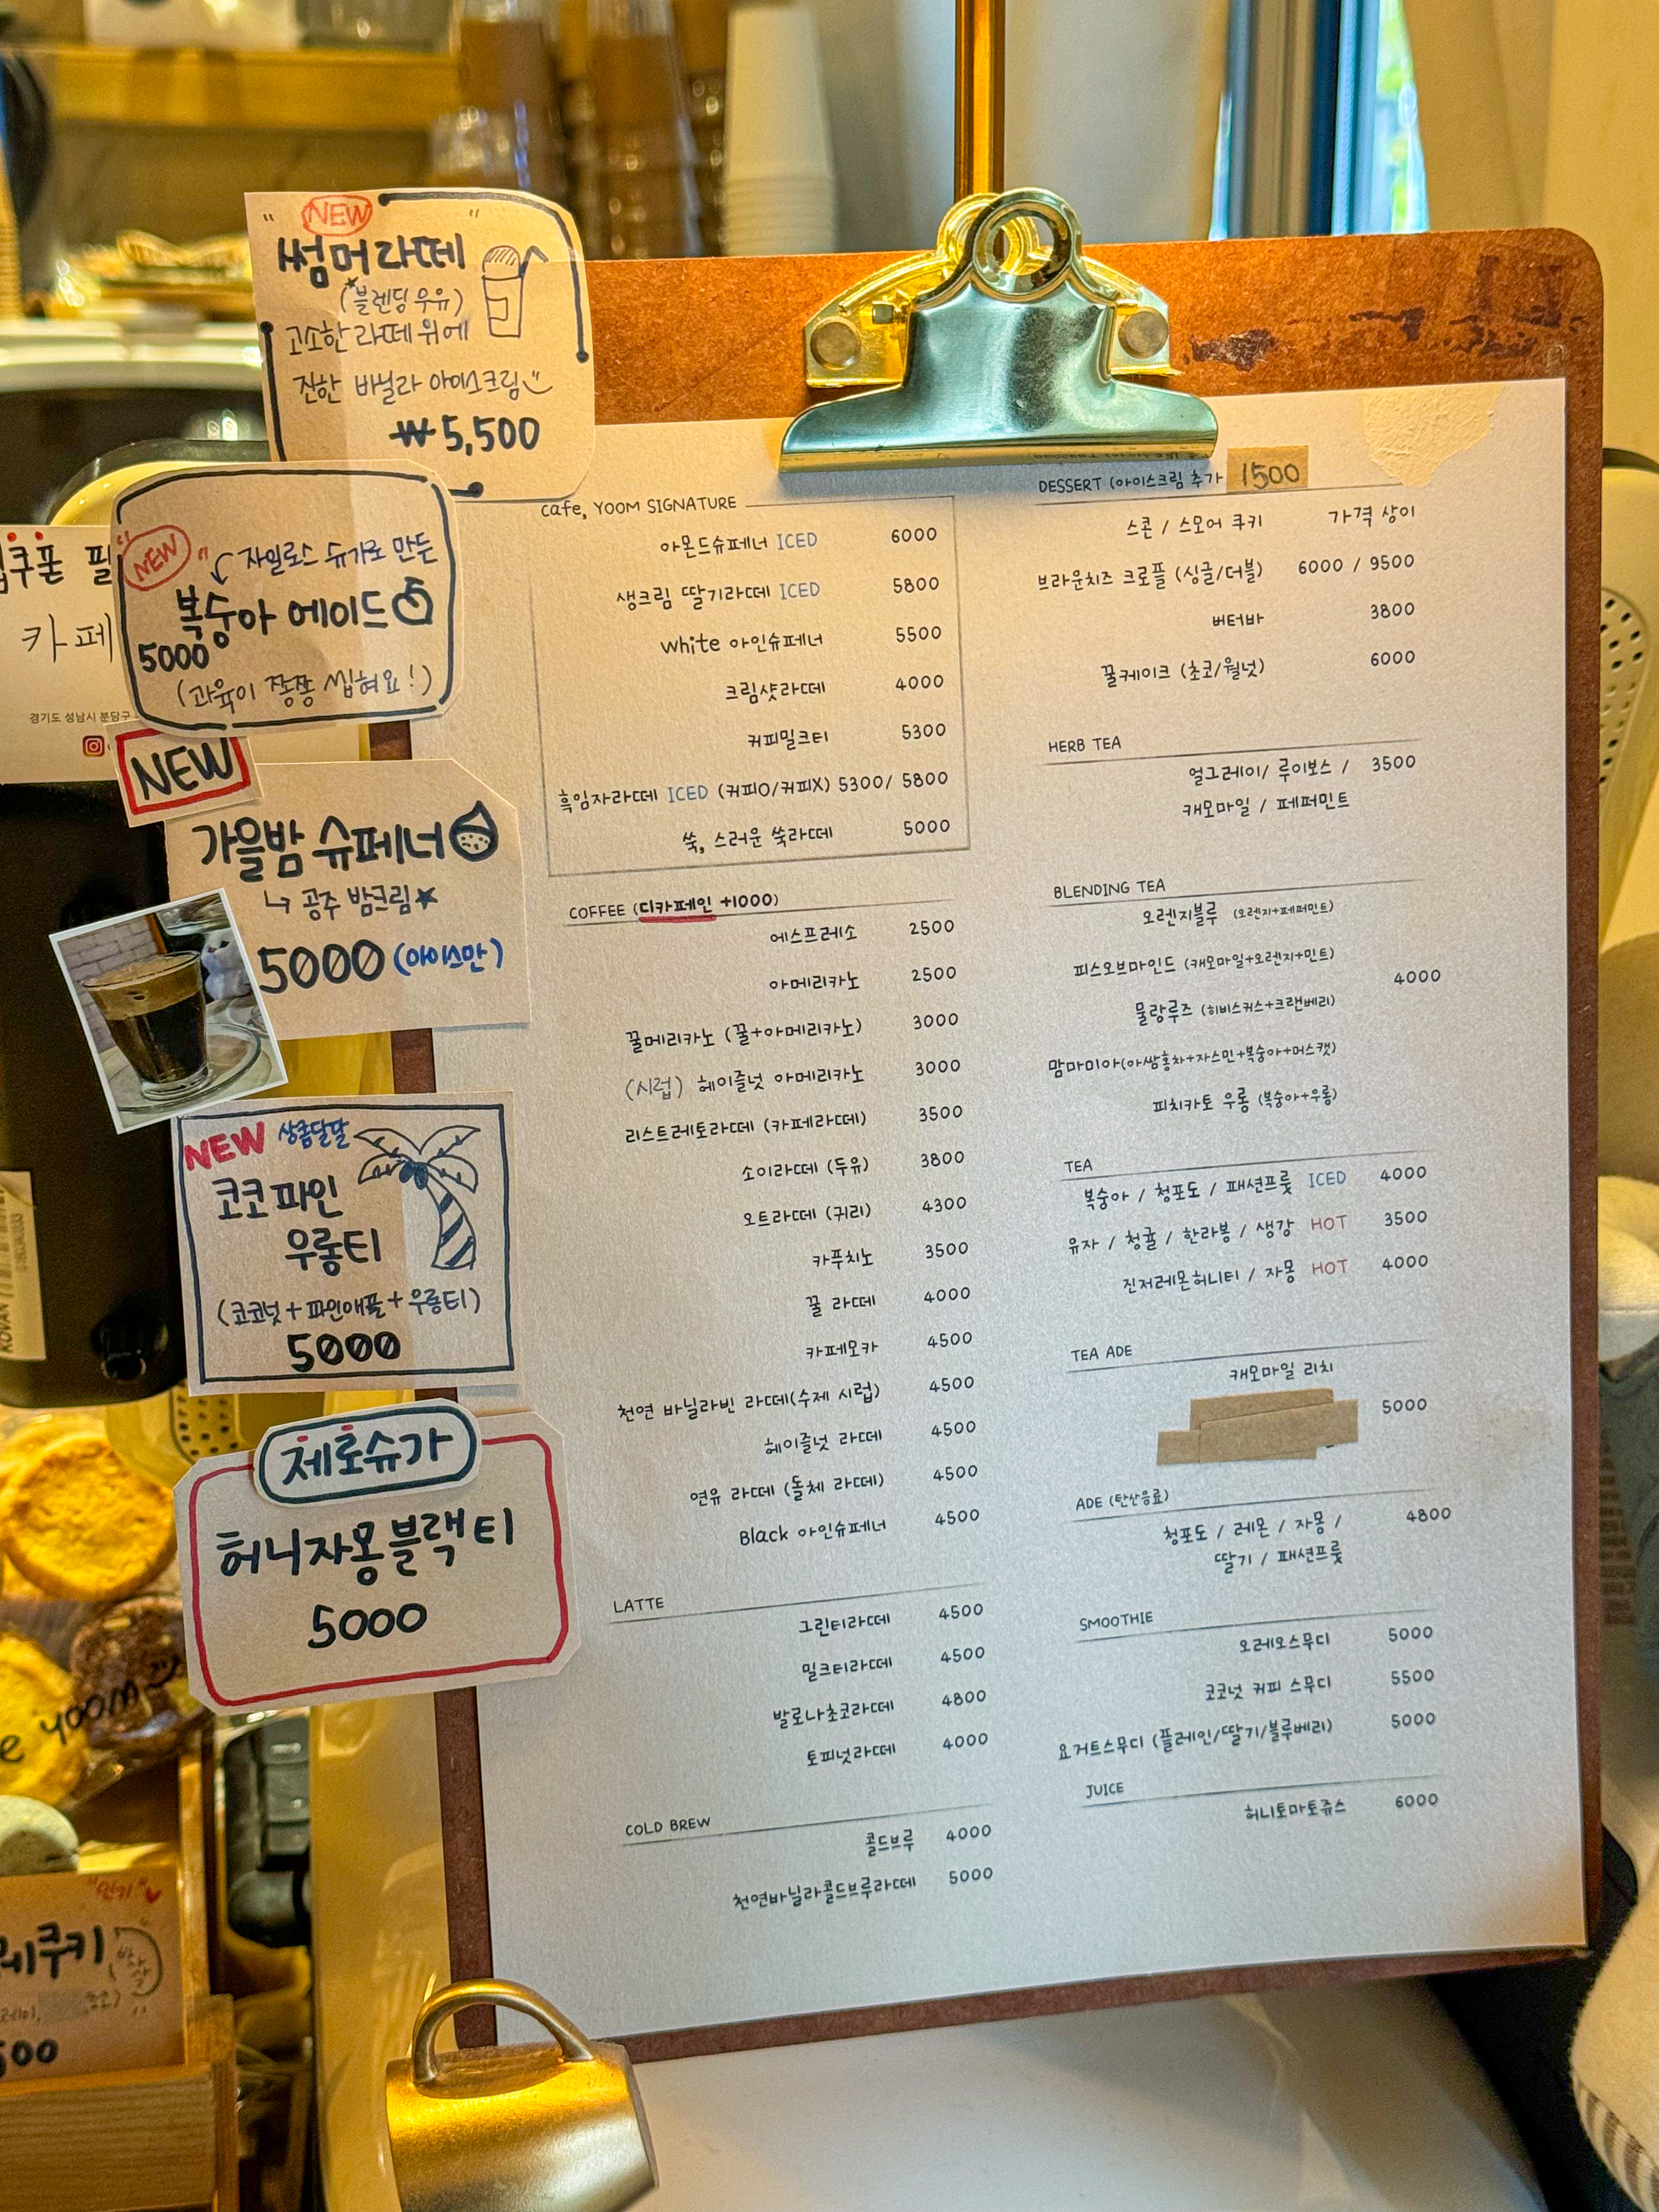 " NEW "
썸머라떼
(블렌딩 우유)
고소한 라떼 위에
진한 바닐라 아이스크림
₩5,500
쿠폰
카페
경기도 성남시 분당구
"NEW" 자일로스 슈가로 만든
복숭아 에이드
5000
(과육이 쫑쫑 씹혀요!)
NEW
가을밤 슈페너
↳ 공주 밤크림★
5000 (아이스만)
NEW 상콤달달
코코파인
우롱티
(코코넛+파인애플+우롱티)
5000
제로슈가
허니자몽블랙티
5000
yoom
"인기"♥
쿠키
500
KOVAN
cafe, YOOM SIGNATURE
아몬드슈페너 ICED 6000
생크림 딸기라떼 ICED 5800
White 아인슈페너 5500
크림샷라떼 4000
커피밀크티 5300
흑임자라떼 ICED (커피O/커피X) 5300/ 5800
쑥, 스러운 쑥라떼 5000
COFFEE (디카페인 +1000)
에스프레소 2500
아메리카노 2500
꿀메리카노 (꿀+아메리카노) 3000
(시럽) 헤이즐넛 아메리카노 3000
리스트레토라떼 (카페라떼) 3500
소이라떼 (두유) 3800
오트라떼 (귀리) 4300
카푸치노 3500
꿀 라떼 4000
카페모카 4500
천연 바닐라빈 라떼(수제 시럽) 4500
헤이즐넛 라떼 4500
연유 라떼 (돌체 라떼) 4500
Black 아인슈페너 4500
LATTE
그린티라떼 4500
밀크티라떼 4500
발로나초코라떼 4800
토피넛라떼 4000
COLD BREW
콜드브루 4000
천연바닐라콜드브루라떼 5000
DESSERT (아이스크림 추가 1500
스콘 / 스모어 쿠키 가격 상이
브라운치즈 크로플 (싱글/더블) 6000 / 9500
버터바 3800
꿀케이크 (초코/월넛) 6000
HERB TEA
얼그레이/ 루이보스 / 3500
캐모마일 / 페퍼민트
BLENDING TEA
오렌지블루 (오렌지+페퍼민트)
피스오브마인드 (캐모마일+오렌지+민트)
4000
물랑루즈 (히비스커스+크랜베리)
맘마미아(아쌈홍차+자스민+복숭아+머스캣)
피치카토 우롱 (복숭아+우롱)
TEA
복숭아 / 청포도 / 패션프룻 ICED 4000
유자 / 청귤 / 한라봉 / 생강 HOT 3500
진저레몬허니티 / 자몽 HOT 4000
TEA ADE
캐모마일 리치
5000
ADE (탄산음료)
청포도 / 레몬 / 자몽 / 4800
딸기 / 패션프룻
SMOOTHIE
오레오스무디 5000
코코넛 커피 스무디 5500
요거트스무디 (플레인/딸기/블루베리) 5000
JUICE
허니토마토쥬스 6000